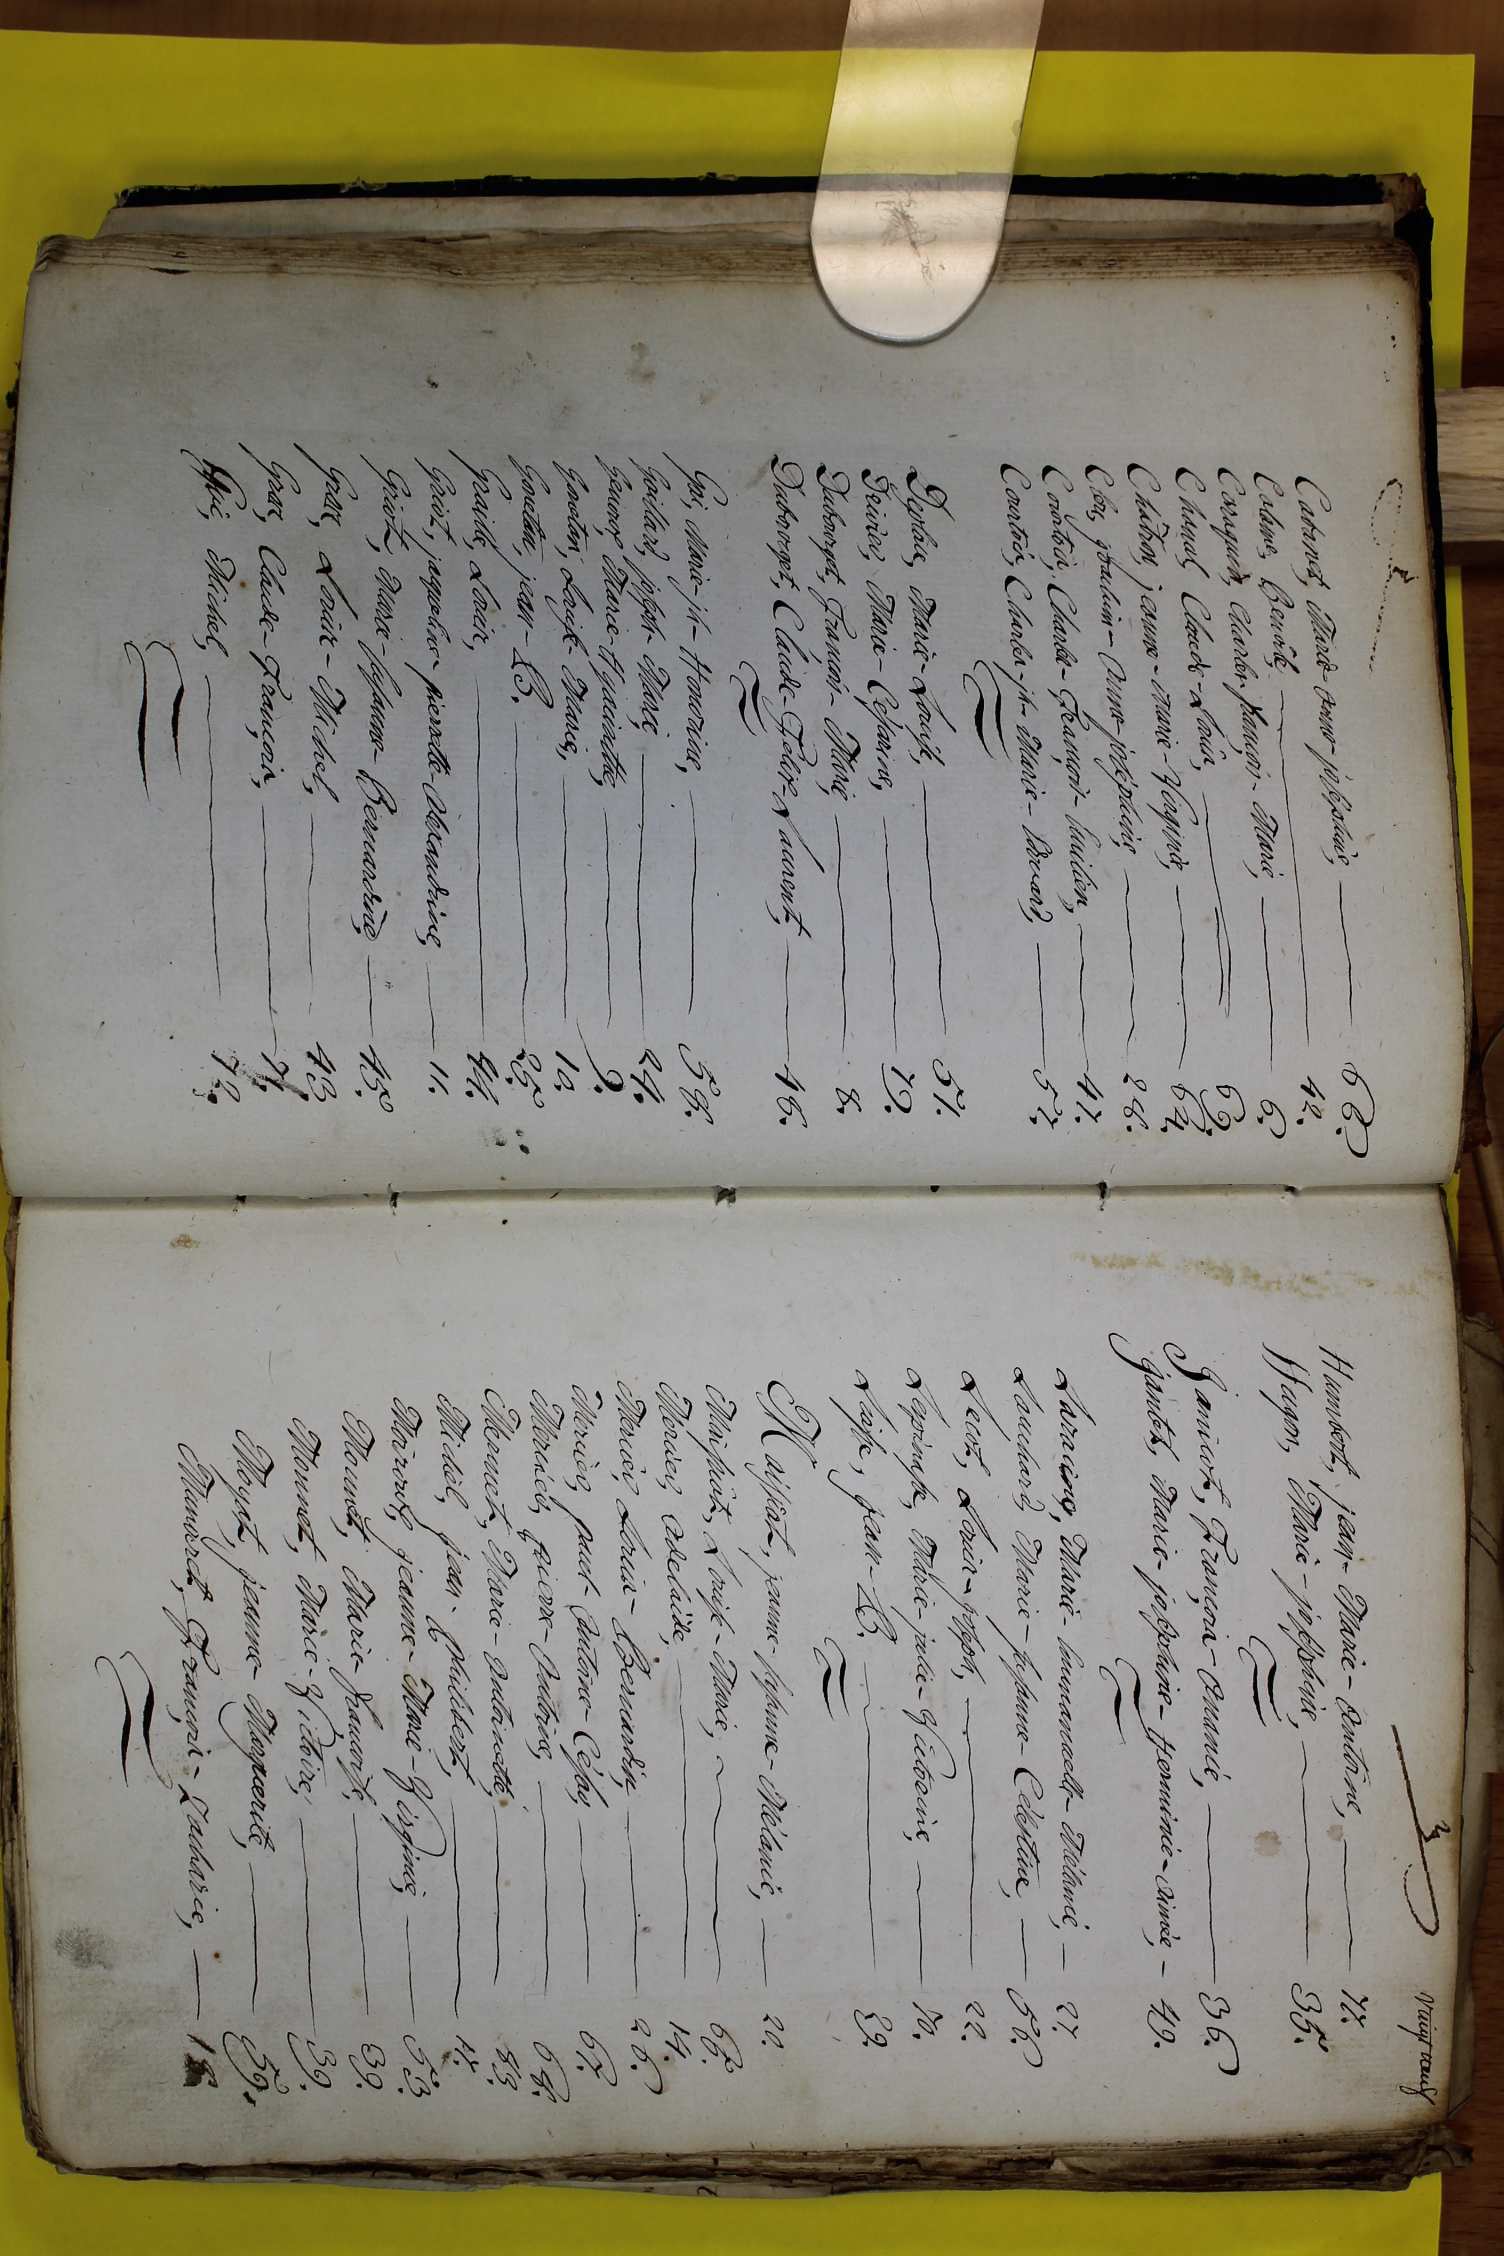 Cabanet, Marie-anne-josephine, 62.
Cabane, Benoit, 42.
Caraguel, Charles-françois-Marie, 6.
Chanal, Claude-Louis, 69.
Chatron, jeanne-marie-Virginie, 64.
Clay, joachim-anne-josephine, 28.
Courtois, Charles-François-Lucien, 47.
Courtois, Charles-jh-Marie-Bernard, 57.
Marie-Louise, 51.
Marie-Césarine, 19.
Dubourget, François-Marie, 8.
Dubourget, Claude-Félix-Laurent, 46.
Goi, Marie-jh-Honorine, 58.
Goillard, joseph-Marie, 24.
Marie-Hyacinthe, 9.
Goneton, Louise-Marie, 10.
Goneton, jean-B. 25.
Graille, Louis, 44.
Griot, jacqueline-pierrette-Alexandrine, 11.
Griot, Marie-josephine-Bernardine, 45.
Gros, Louis-Michel, 43
Gros, Claude-François, 7.
Michel, 72.
Vaingt neuf
Humbert, jean-Marie-Antoine, 72.
Hugon, Marie-josephine, 35.
Janicot, François-Ananie, 36.
Jantet, Marie-josephine-herminie-aimée, 49.
Laracine, Marie-Emmanuelle-Mélanie, 27.
Lauchard, Marie-josephine-Célestine, 56.
Lecot, Louis-joseph, 22.
Lespinasse, Marie-julie-Victorine, 70.
jean-B. 29.
Maissiat, jeanne-josephine-Mélanie, 20.
Louise-Marie, 66.
Mercier, adelaide, 14.
Mercier, Louis-Bernardin, 26.
Mercier, paul-Antoine-César, 67.
Mercier, pierre-Antoine, 68.
Mermet, Marie-Antoinette, 53
Midol, jean-Philibert, 4.
jeanne-Marie-Virginie, 53.
Monnet, Marie-françoise, 39.
Monnet, Marie-Victoire, 39.
Moyret, jeanne-Marguerite, 59.
François-Zacharie, 18